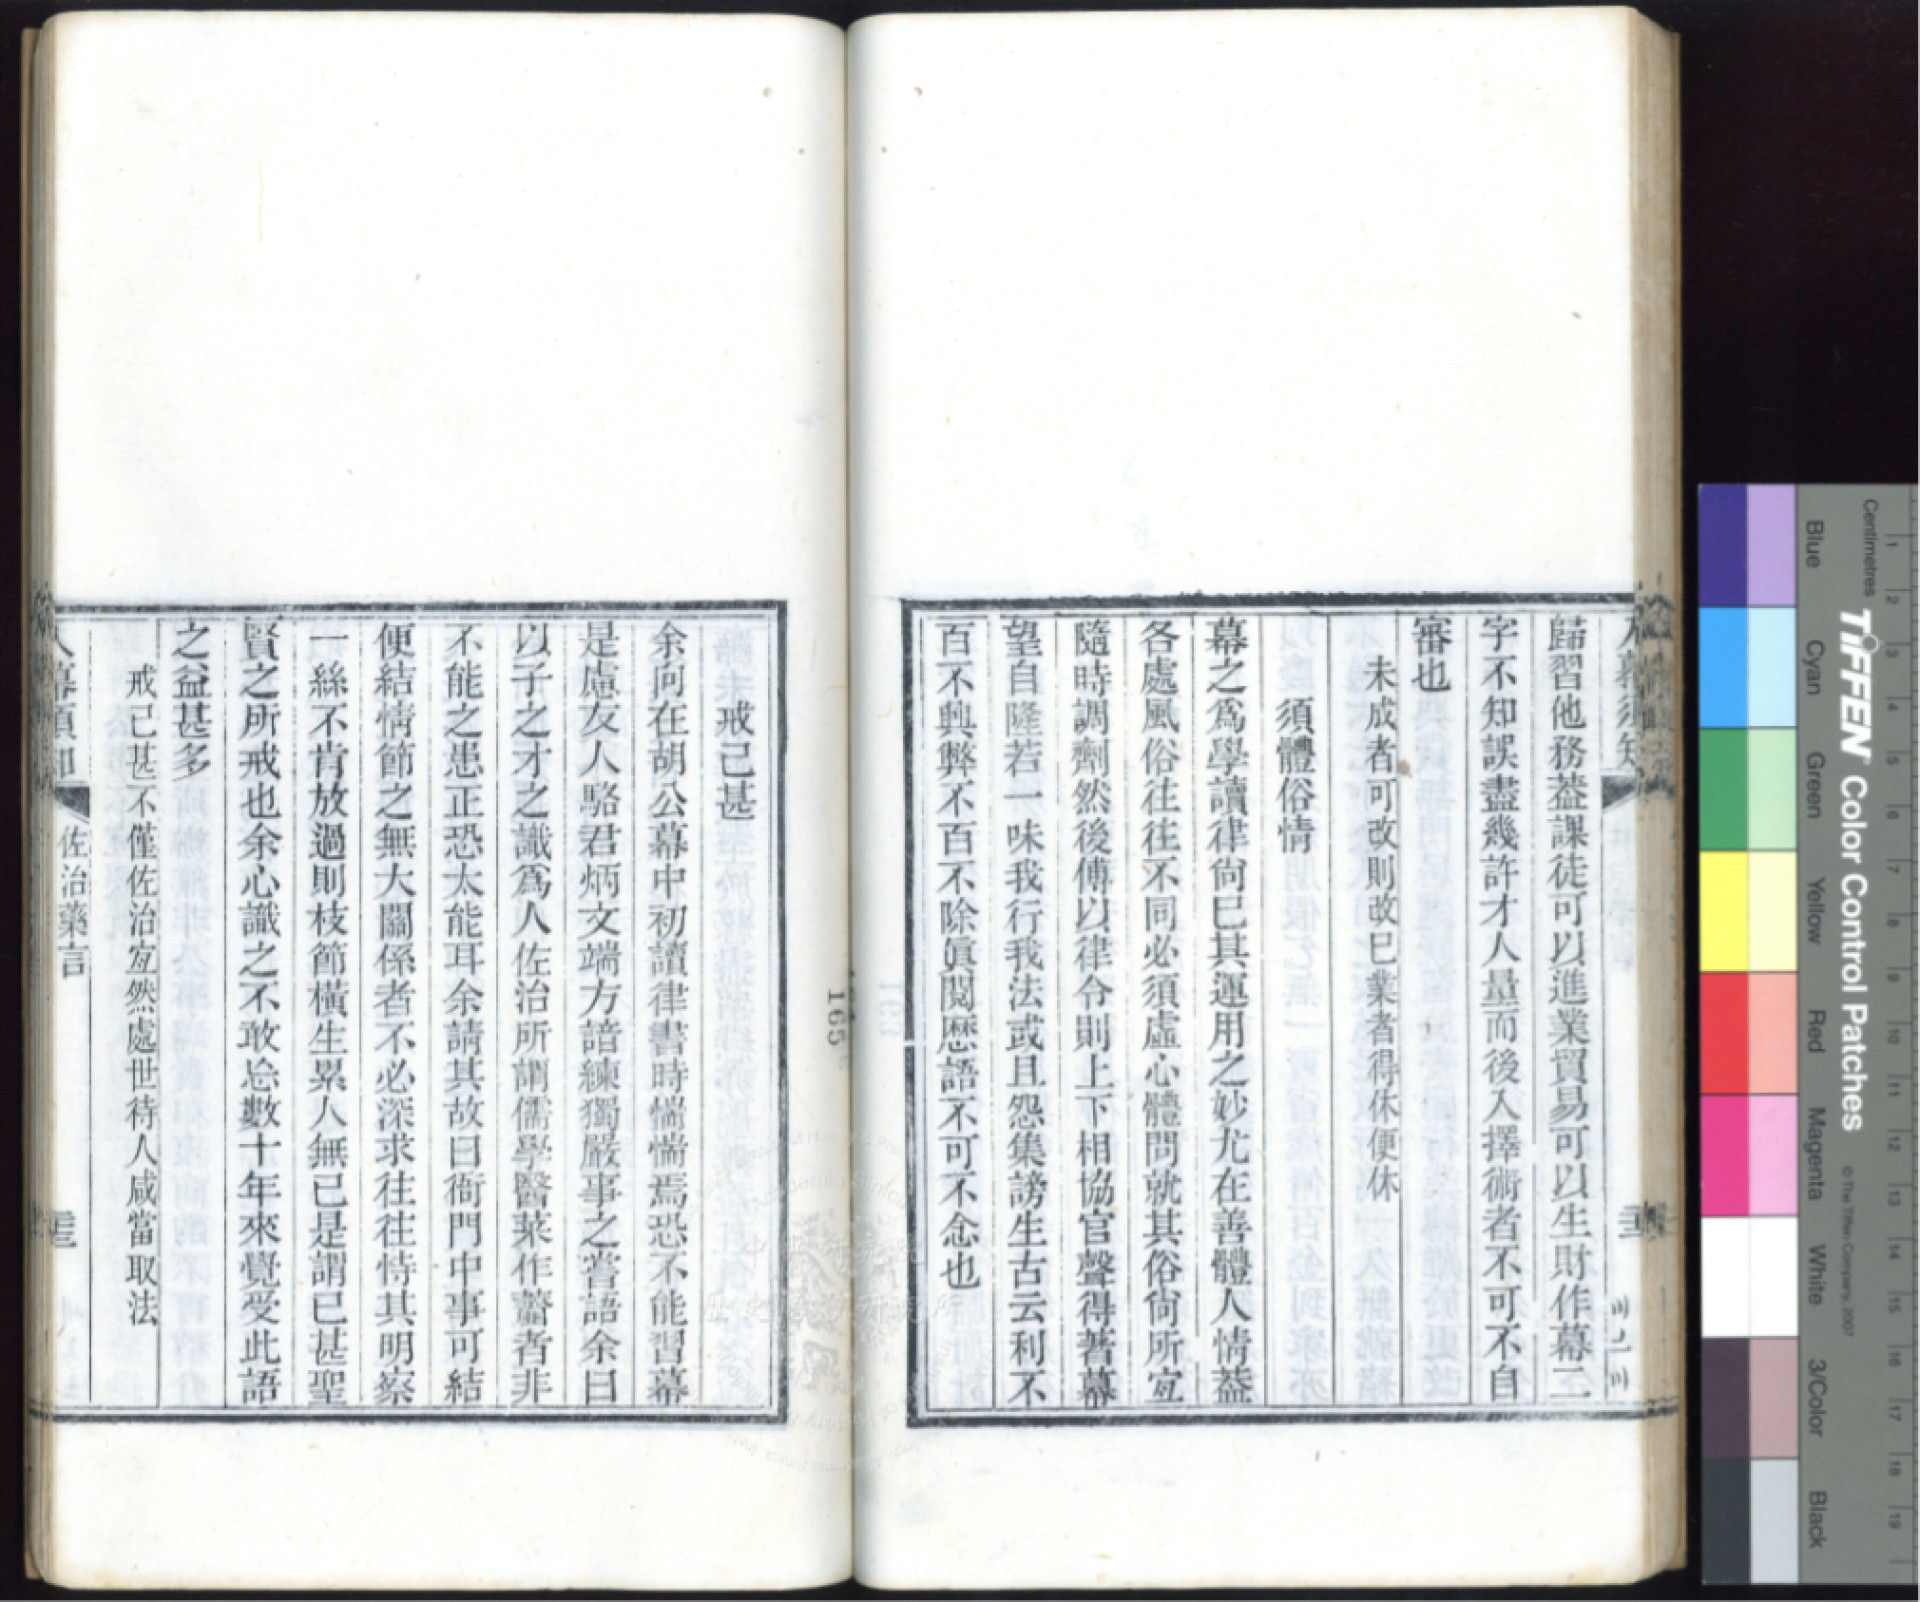 入幕須知
歸習他務葢課徒可以進業貿易可以生財作幕二
字不知誤盡幾許才人量而後入擇術者不可不自
審也
未成者可改則改已業者得休便休
須體俗情
幕之爲學讀律尙已其運用之妙尤在善體人情葢
各處風俗往往不同必須虛心體問就其俗尙所宐
隨時調劑然後傅以律令則上下相協官聲得著幕
望自隆若一味我行我法或且怨集謗生古云利不
百不興弊不百不除眞閱歷語不可不念也
戒已甚
余向在胡公幕中初讀律書時惴惴焉恐不能習幕
是慮友人駱君炳文端方諳練獨嚴事之嘗語余曰
以子之才之識爲人佐治所謂儒學醫菜作虀者非
不能之患正恐太能耳余請其故曰衙門中事可結
便結情節之無大關係者不必深求往往恃其明察
一絲不肯放過則枝節橫生累人無已是謂已甚聖
賢之所戒也余心識之不敢忘數十年來覺受此語
之益甚多
戒已甚不僅佐治宐然處世待人咸當取法
入幕須知
佐治藥言
165
Centimetres
TIFFEN Color Control Patches
© The Tiffen Company, 2007
Blue
Cyan
Green
Yellow
Red
Magenta
White
3/Color
Black
1 2 3 4 5 6 7 8 9 10 11 12 13 14 15 16 17 18 19